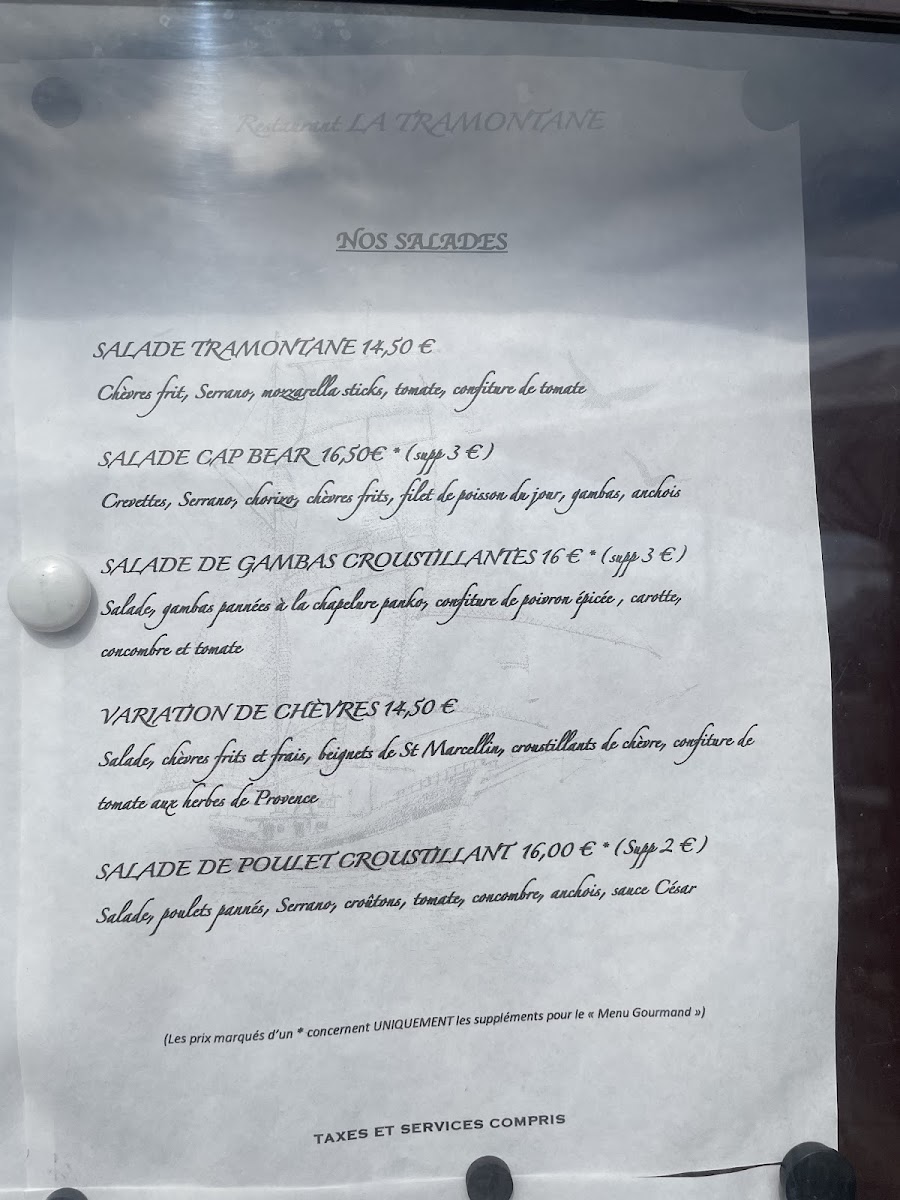 Restaurant LA TRAMONTANE
NOS SALADES
SALADE TRAMONTANE 14,50 €
Chèvres frit, Serrano, mozzarella sticks, tomate, confiture de tomate
SALADE CAP BEAR 16,50€ * (supp 3 €)
Crevettes, Serrano, chorizo, chèvres frits, filet de poisson du jour, gambas, anchois
SALADE DE GAMBAS CROUSTILLANTES 16 € * (supp 3 €)
Salade, gambas pannées à la chapelure panko, confiture de poivron épicée , carotte,
concombre et tomate
VARIATION DE CHÈVRES 14,50 €
Salade, chèvres frits et frais, beignets de St Marcellin, croustillants de chèvre, confiture de
tomate aux herbes de Provence
SALADE DE POULET CROUSTILLANT 16,00 € * (Supp 2 €)
Salade, poulets pannés, Serrano, croûtons, tomate, concombre, anchois, sauce César
(Les prix marqués d'un * concernent UNIQUEMENT les suppléments pour le « Menu Gourmand »)
TAXES ET SERVICES COMPRIS